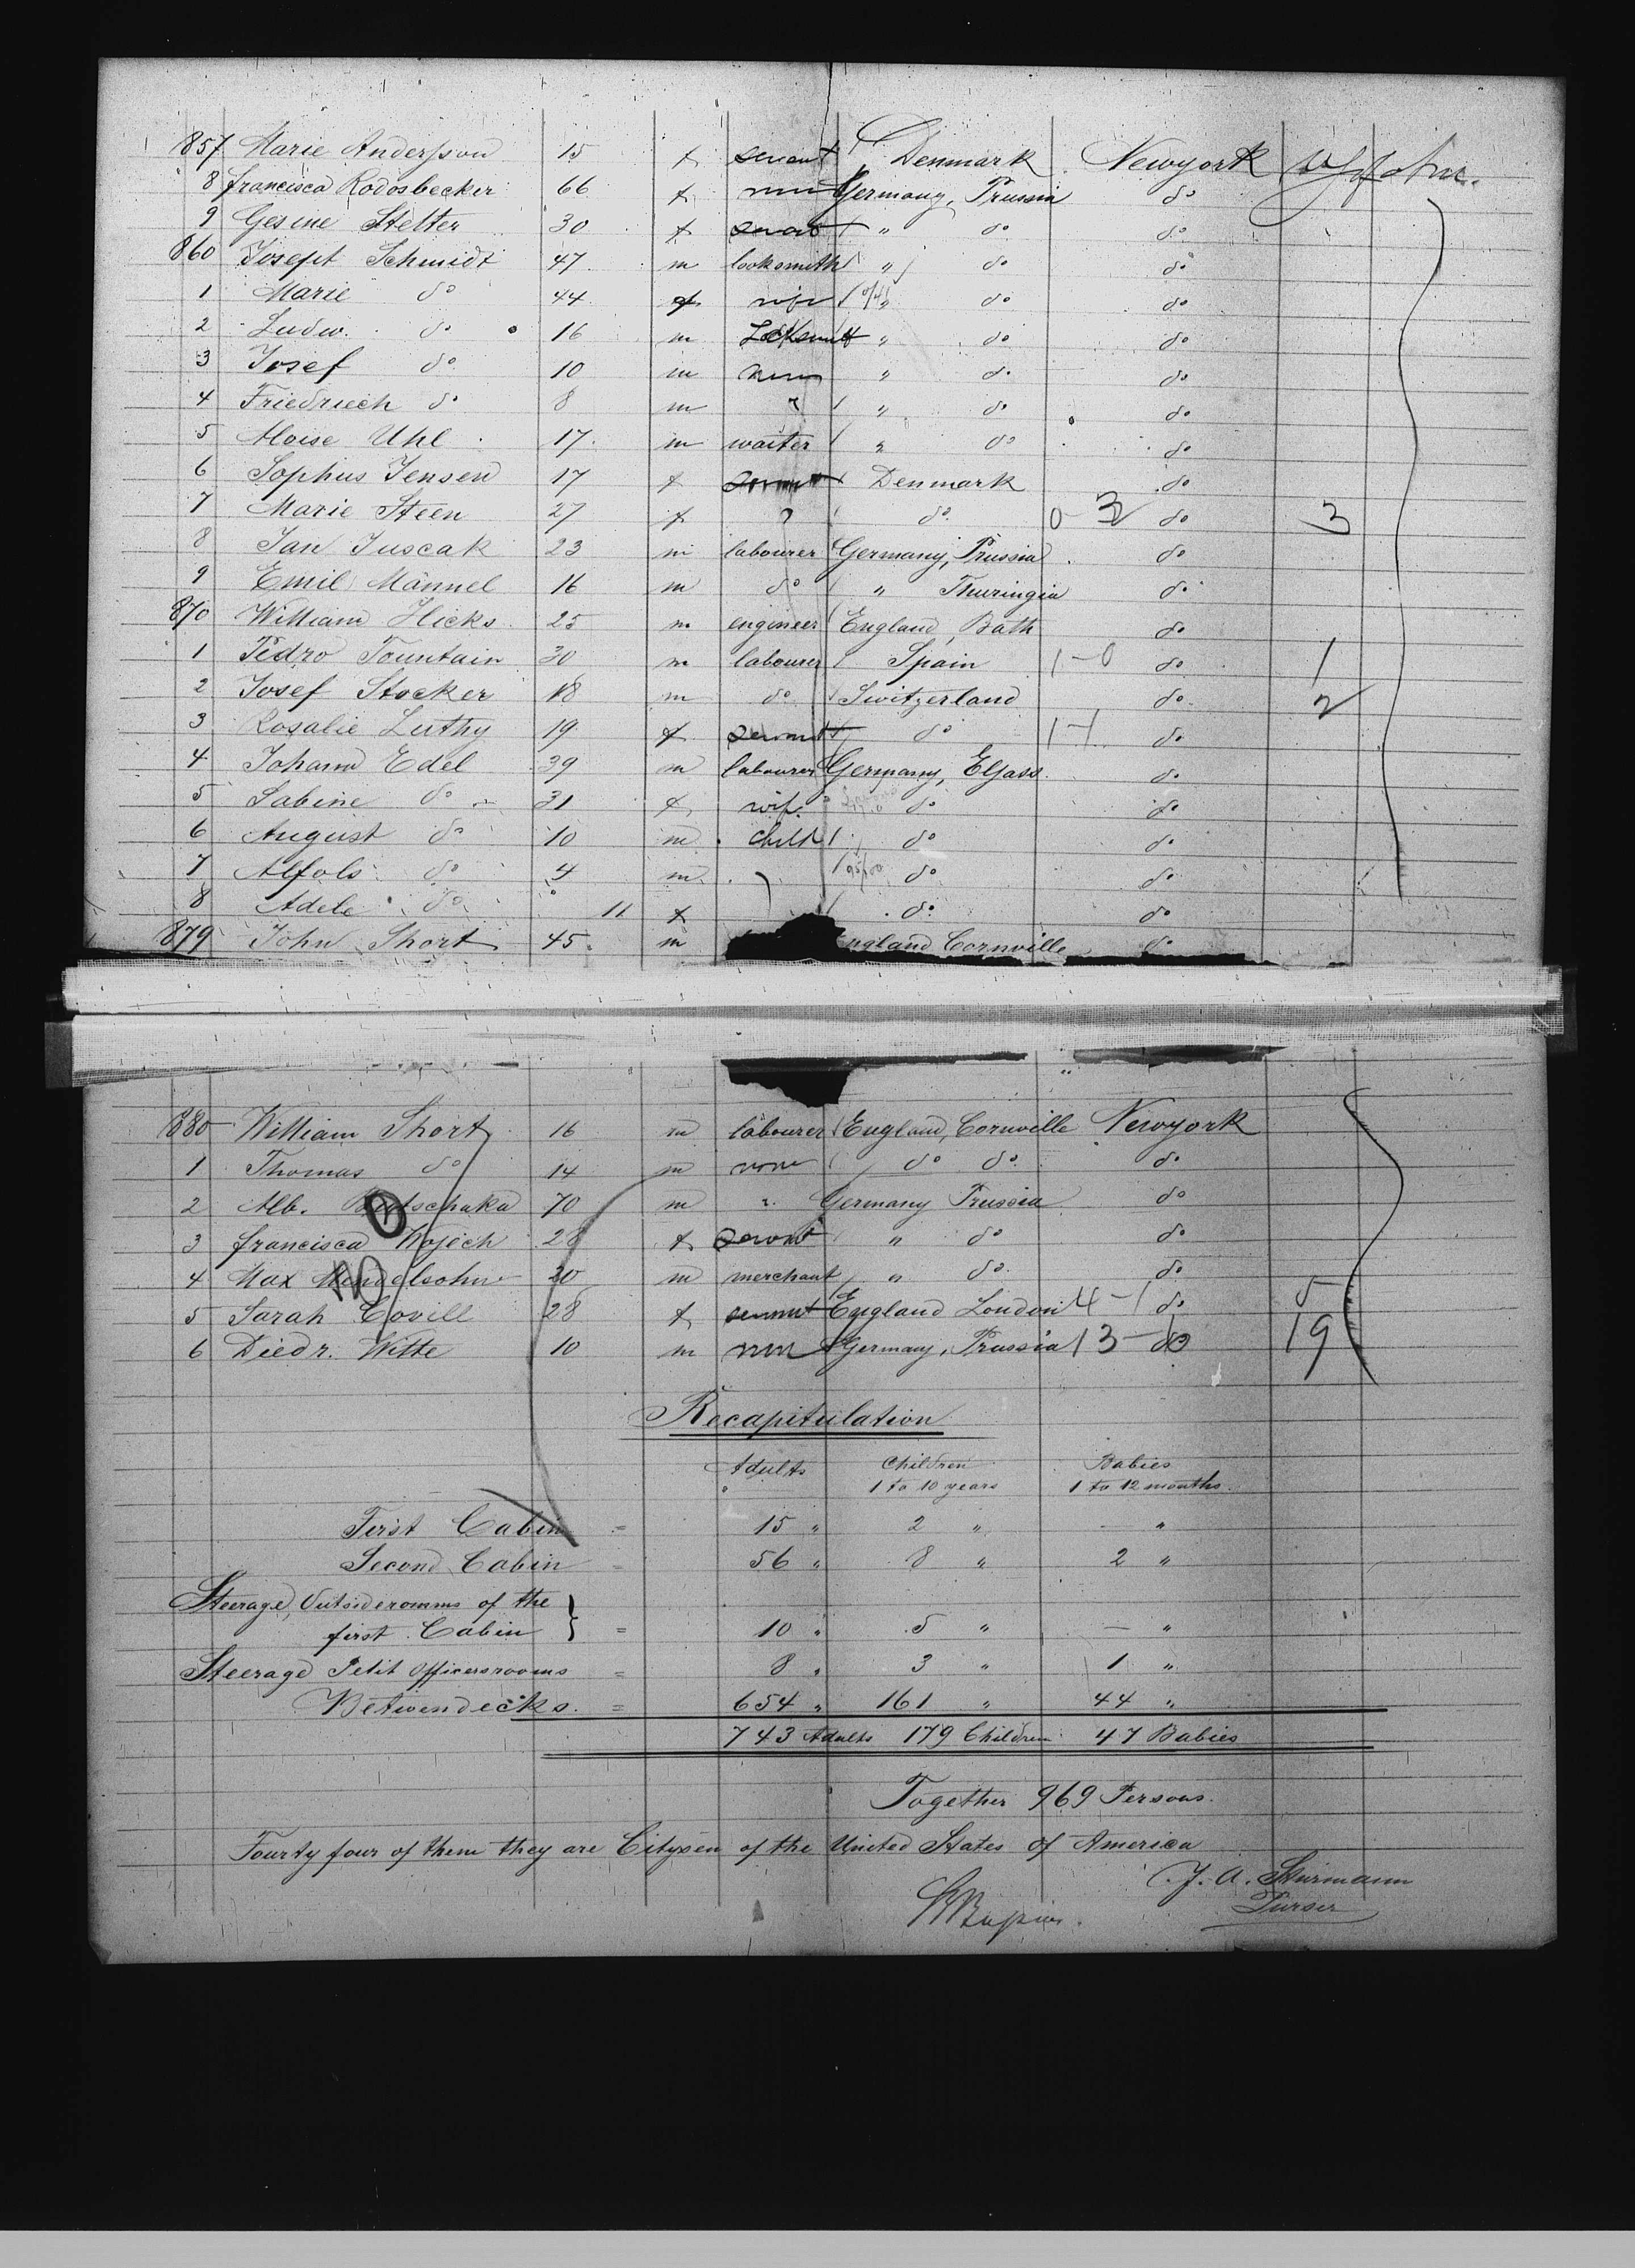 857 Marie Andersson 15 f servant Denmark Newyork
8 francisca Rodosbecker 66 f Germany, Prussia do
9 Gesine Stelter 30 f " do do
860 Josept Schmidt 47 m locksmith " do do
1 Marie do 44 f wife " do do
2 Ludw. do 16 m Locksmith " do do
3 Josef do 10 m none " do do
4 Friedriech do 8 m " " do do
5 Aloise Uhl 17 m waiter " do do
6 Sophus Jensen 17 f Denmark do
7 Marie Steen 27 f " do 0-3 do 3
8 Jan Juscak 23 m labourer Germany, Prussia do
9 Emil Männel 16 m do " Thuringia do
870 William Hicks 25 m engineer England, Bath do
1 Pedro Fountain 30 m labourer Spain 1-0 do 1
2 Josef Stocker 18 m do Switzerland do 2
3 Rosalie Luthy 19 f servant do 1-1 do
4 Johann Edel 39 m labourer Germany, Elsass do
5 Sabine do 31 f wife do do
6 August do 10 m child do do
7 Alfols do 4 m do do
8 Adele do 11 f do do
879 John Short 45 m England Cornville do
880 William Short 16 m labourer England, Cornville Newyork
1 Thomas do 14 m none do do do
2 Alb. 70 m " Germany Prussia do
3 francisca Kojech 28 f servant " do do
4 Max Mendelsohn 20 m merchant " do do
5 Sarah Covill 28 f servant England London 4-1 do 5
6 Diedr. Witte 10 m none Germany, Prussia 13- do 19
Recapitulation
Adults Children Babies
1 to 10 years 1 to 12 months
First Cabin = 15 " 2 " - "
Second Cabin = 56 " 8 " 2 "
Steerage, Outsideromms of the
first Cabin } = 10 " 5 " - "
Steerage Petit Officersrooms = 8 " 3 " 1 "
Betwendecks. = 654 " 161 " 44 "
743 Adults 179 Children 47 Babies
Together 969 Persons.
Fourty four of them they are Cityzen of the United States of America
J. A. Stürmann
Purser